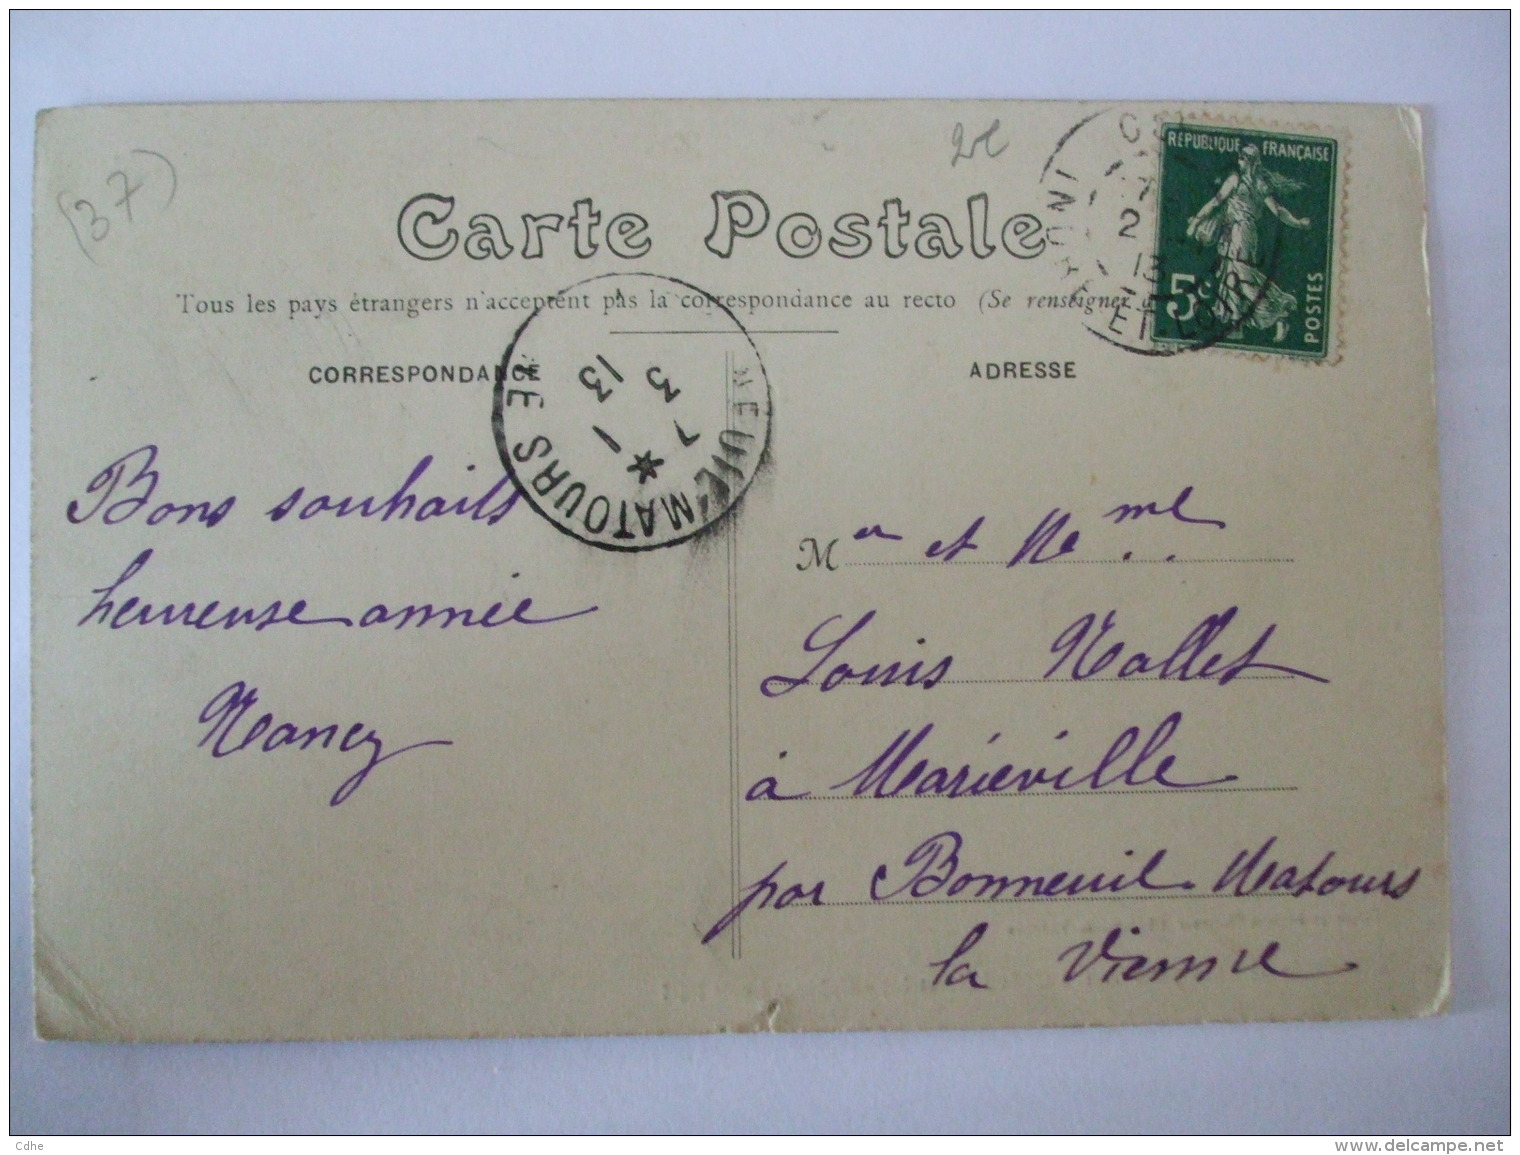 (37)
2€
Carte Postale
RÉPUBLIQUE FRANÇAISE
5c
POSTES
2
13
ET-LOIRE
Tous les pays étrangers n'acceptent pas la correspondance au recto (Se renseigner
CORRESPONDANCE
ADRESSE
MATOURS
7 *
3 1
13
Bons souhaits
heureuse année
Nancy
Mr et Mme
Louis Mallet
à Mariéville
par Bonneuil. Matours
la Vienne
Cdhe
www.delcampe.net